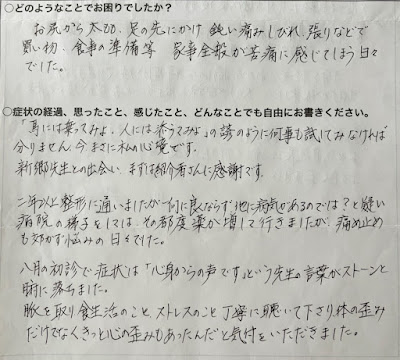 ○どのようなことでお困りでしたか？
お尻から太もも、足の先にかけ 鈍い痛みしびれ、張りなどで
買い物、食事の準備等 家事全般が苦痛に感じてしまう日々
でした。
○症状の経過、思ったこと、感じたこと、どんなことでも自由にお書きください。
「馬には乗ってみよ、人には添うてみよ」の諺のように何事も試してみなければ
分りません 今まさに私の心境です。
新郷先生との出会い まずは紹介者さんに感謝です。
二年以上整形に通いましたが一向に良くならず他に病気があるのでは？と疑い
病院の梯子をしては、その都度薬が増して行きましたが、痛め止め
も効かず悩みの日々でした。
八月の初診で症状は「心身からの声です」という先生の言葉がストーンと
肘に落ちました。
脈を取り食生活のこと ストレスのこと 丁寧に聴いて下さり、体の歪み
だけでなくきっと心の歪みもあったんだと気付をいただきました。